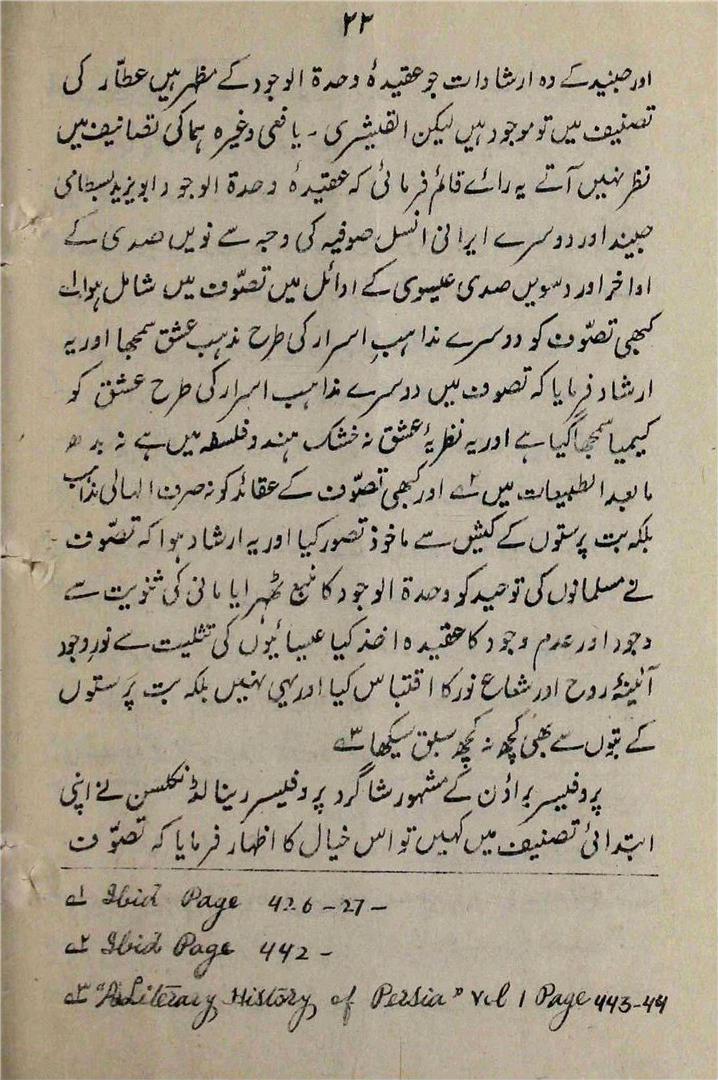 ۲۲
اور جنید کے وہ ارشادات جو عقیدۂ وحدۃ الوجود کے مظہر ہیں عطّار کی
تصنیف میں تو موجود ہیں لیکن القیشری ۔ یافعی وغیرہ ہما کی تصانیف میں
نظر نہیں آتے یہ رائے قائم فرمائی کہ عقیدۂ وحدۃ الوجود ابویزید بسطامی
جنید اور دوسرے ایرانی النسل صوفیہ کی وجہ سے نویں صدی کے
اواخر اور دسویں صدی عیسوی کے اوائل میں تصوّف میں شامل ہوا ؎۱
کبھی تصوّف کو دوسرے مذاہبِ اسرار کی طرح مذہبِ عشق سمجھا اور یہ
ارشاد فرمایا کہ تصوف میں دوسرے مذاہب اسرار کی طرح عشق کو
کیمیا سمجھا گیا ہے اور یہ نظریۂ عشق نہ خشک ہندو فلسفہ میں ہے نہ بدھ
مابعد الطبیعات میں ؎۲ اور کبھی تصوّف کے عقائد کو نہ صرف الہالی مذاہب
بلکہ بت پرستوں کے کیش سے ماخوذ تصور کیا اور یہ ارشاد ہوا کہ تصوّف
نے مسلمانوں کی توحید کو وحدۃ الوجود کا منبع ٹھہرایا مانی کی ثنویت سے
وجود اور عدم وجود کا عقیدہ اخذ کیا عیسائیوں کی تثلیث سے نورِ وجود
آئینۂ روح اور شعاع نور کا اقتباس کیا اور یہی نہیں بلکہ بت پرستوں
کے بتوں سے بھی کچھ نہ کچھ سبق سیکھا ؎۳
پروفیسر براؤن کے مشہور شاگرد پروفیسر رینالڈ نکلسن نے اپنی
ابتدائی تصنیف میں کہیں تو اس خیال کا اظہار فرمایا کہ تصوّف
؎۱ Ibid Page 426-27-
؎۲ Ibid Page 442-
؎۳ "A Literary History of Persia" vol 1 Page 443-44